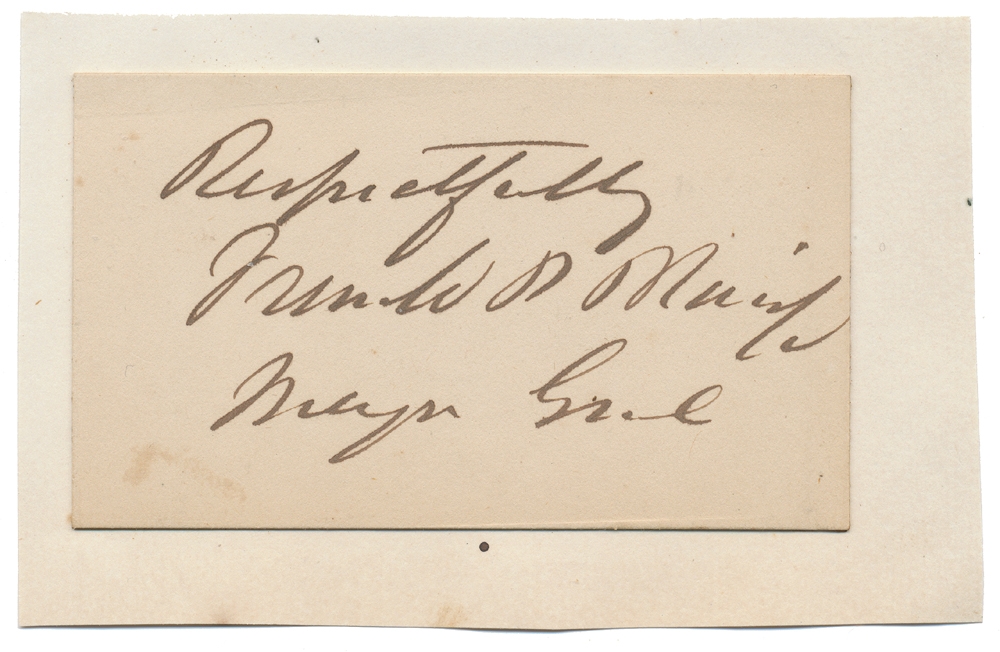 Respectfully
Frank P Blair Jr
Major Genl